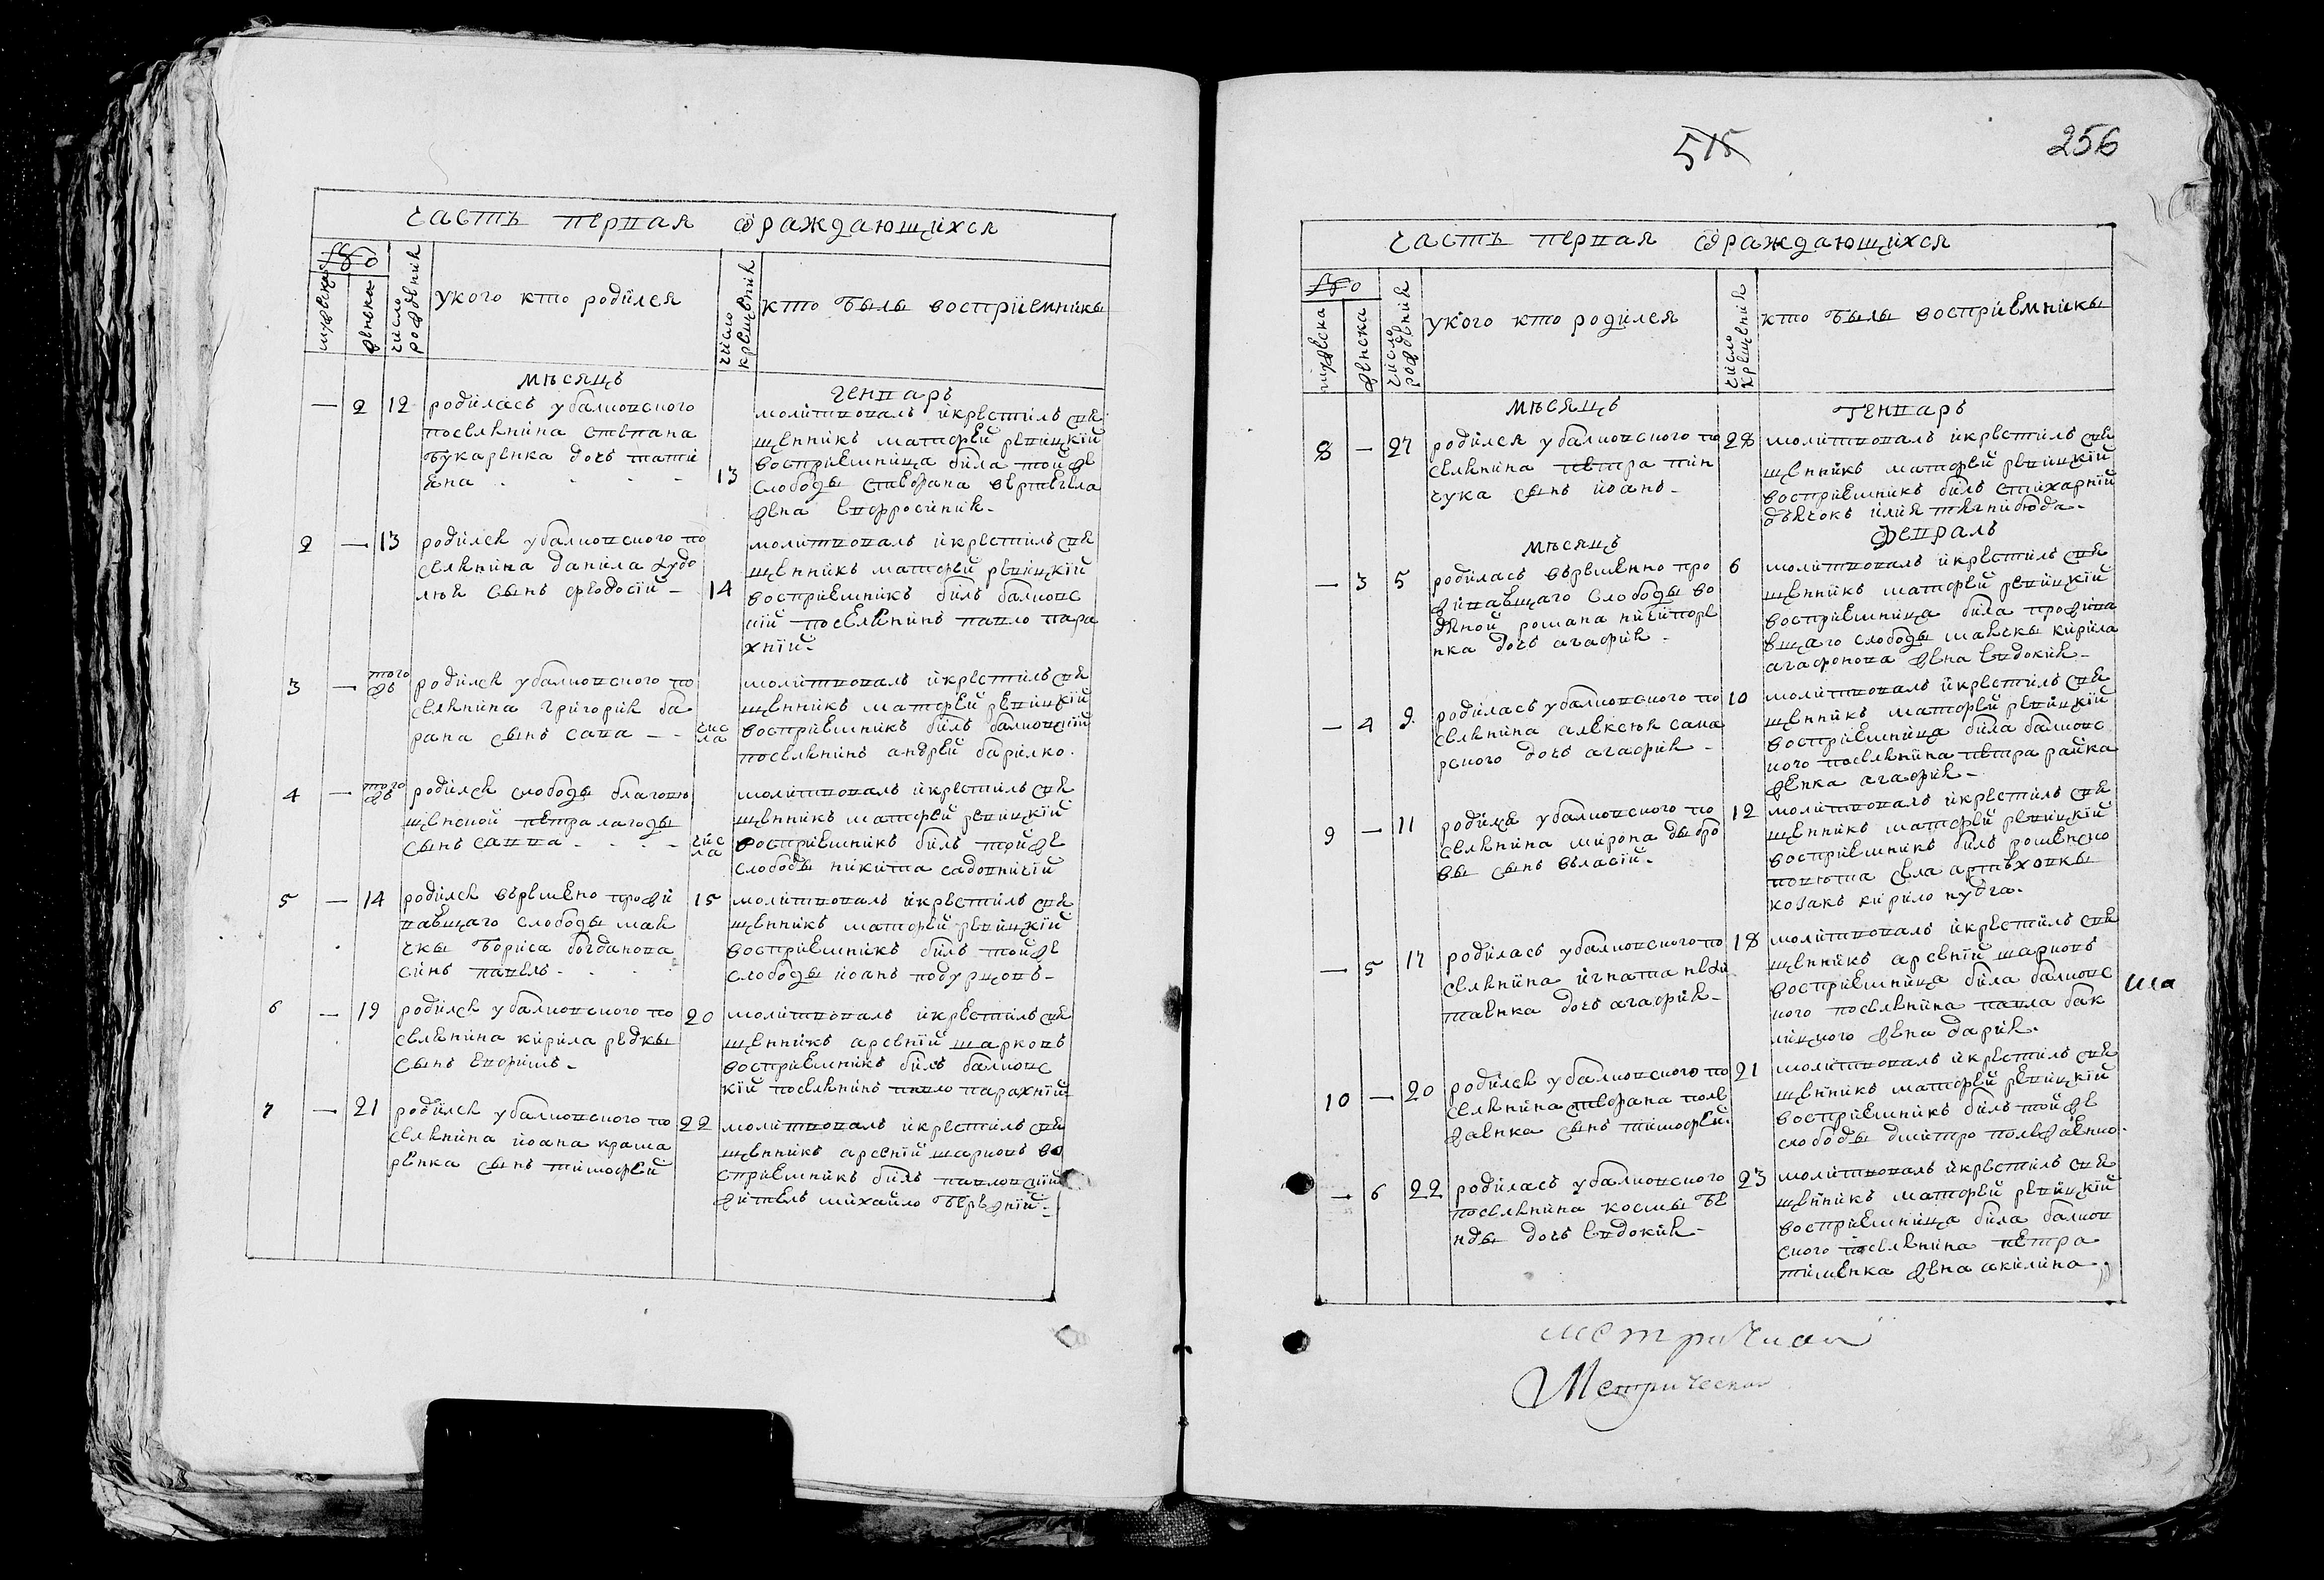 часть первая ѿраждающихся
№о
мужеска
женска
число рожденія
укого кто родился
число крещенія
кто былы воспріемникы
мѣсяцъ
генваръ
2 12 родилась убалковского
поселянина степана
букаренка дочь татія
яна 13
молитвовалъ икрестилъ свя
щенникъ матфей ревицкій
воспріемница била тойже
слободы стефана
жена евфросинія
2 13 родился убалковского по
селянина данила
сынъ феодосій 14
молитвовалъ икрестилъ свя
щенникъ матфей ревицкій
воспріемникъ билъ балковс
кій поселянинъ павло пара
хній
3 того же родился убалковского по
селянина григорія ба
рана сынъ сава числа
молитвовалъ икрестилъ свя
щенникъ матфей ревицкій
воспріемникъ билъ балковскій
поселянинъ андрей барилко
4 того же родился слободы благовѣ
щенской петра лагоды
сынъ савва числа
молитвовалъ икрестилъ свя
щенникъ матфей ревицкій
воспріемникъ билъ тойже
слободы никита садовничій
5 14 родился временно прожи
вавщаго слободы мая
чкы бориса богданова
синъ павелъ 15
молитвовалъ икрестилъ свя
щенникъ матфей ревицкій
воспріемникъ билъ тойже
слободы іоанъ подурцовъ
6 19 родился убалковского по
селянина кирила редкы
сынъ ефримъ 20
молитвовалъ икрестилъ свя
щенникъ арсеній шарковъ
воспріемникъ билъ балковс
кій поселянинъ павло парахній
7 21 родился убалковского по
селянина іоана крама
ренка сынъ тимофей 22
молитвовалъ икрестилъ свя
щенникъ арсеній шарковъ во
спріемникъ билъ павловскій
житель михайло бережній
515
256
часть первая ѿраждающихся
№о
мужеска
женска
число рожденія
укого кто родился
число крещенія
кто былы воспріемникы
мѣсяцъ
генваръ
8 27 родился убалковского по
селянина петра пин
чука сынъ іоанъ 28
молитвовалъ икрестилъ свя
щенникъ матфей ревицкій
воспріемникъ билъ стихарній
дьячокъ илія тягнибюда
мѣсяцъ
февралъ
3 5 родилась временно про
живавщаго слободы во
дяной романа ничипоре
нка дочь агафія 6
молитвовалъ икрестилъ свя
щенникъ матфей ревицкій
воспріемница била прожива
вщаго слободы маячкы кирила
агафонова жена евдокія
4 9 родилась убалковского по
селянина алексѣя сама
рского дочь агафія 10
молитвовалъ икрестилъ свя
щенникъ матфей ревицкій
воспріемница била балковс
кого поселянина петра райка
женка агафія
9 11 родился убалковского по
селянина мирона дыбро
вы сынъ власій 12
молитвовалъ икрестилъ свя
щенникъ матфей ревицкій
воспріемникъ билъ роменско
повюта села артюховкы
козакъ кирило кудта
5 17 родилась убалковского по
селянина игната
дочь агафія 18
молитвовалъ икрестилъ свя
щенникъ арсеній шарковъ
воспріемница била балковс
кого поселянина павла бак
лицкого жена дарія
10 20 родился убалковского по
селянина стефана поле
жаенка сынъ тимофей 21
молитвовалъ икрестилъ свя
щенникъ матфей ревицкій
воспріемникъ билъ тойже
слободы дмитро полежаенко
6 22 родилась убалковского
поселянина космы бе
нды дочь евдокія 23
молитвовалъ икрестилъ свя
щенникъ матфей ревицкій
воспріемница била балков
ского поселянина петра
тименка жена акилина
Метрическая